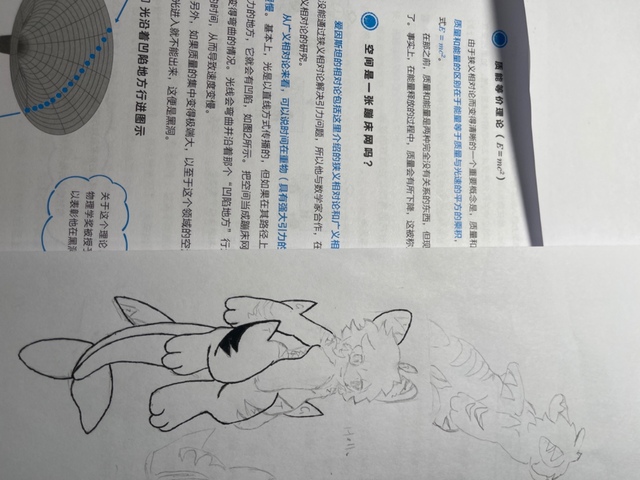 质能等价理论（E=mc²）
由于狭义相对论而变得清晰的一个重要概念是，质量和
质量和能量的区别在于能量等于质量与光速的平方的乘积，
式E=mc²。
在那之前，质量和能量是两种完全没有关系的东西，但现
了。事实上，在能量释放的过程中，质量会有所下降，这被称
空间是一张蹦床网吗？
爱因斯坦的相对论包括这里介绍的狭义相对论和广义相
没能通过狭义相对论解决引力问题，所以他与数学家合作，在
义相对论的研究。
从广义相对论来看，可以说时间在重物（具有强大引力的
慢。基本上，光是以直线方式传播的，但如果在其路径上
力的地方，它就会有凹陷，如图2所示。把空间当成蹦床网
变得弯曲的情况。光线会弯曲并沿着那个“凹陷地方”行
的时间，从而导致速度变慢。
另外，如果质量的集中变得极端大，以至于这个领域的空
光进入就不能出来，这便是黑洞。
光沿着凹陷地方行进图示
关于这个理论
物理学奖被授
以表彰他在黑洞
Hello